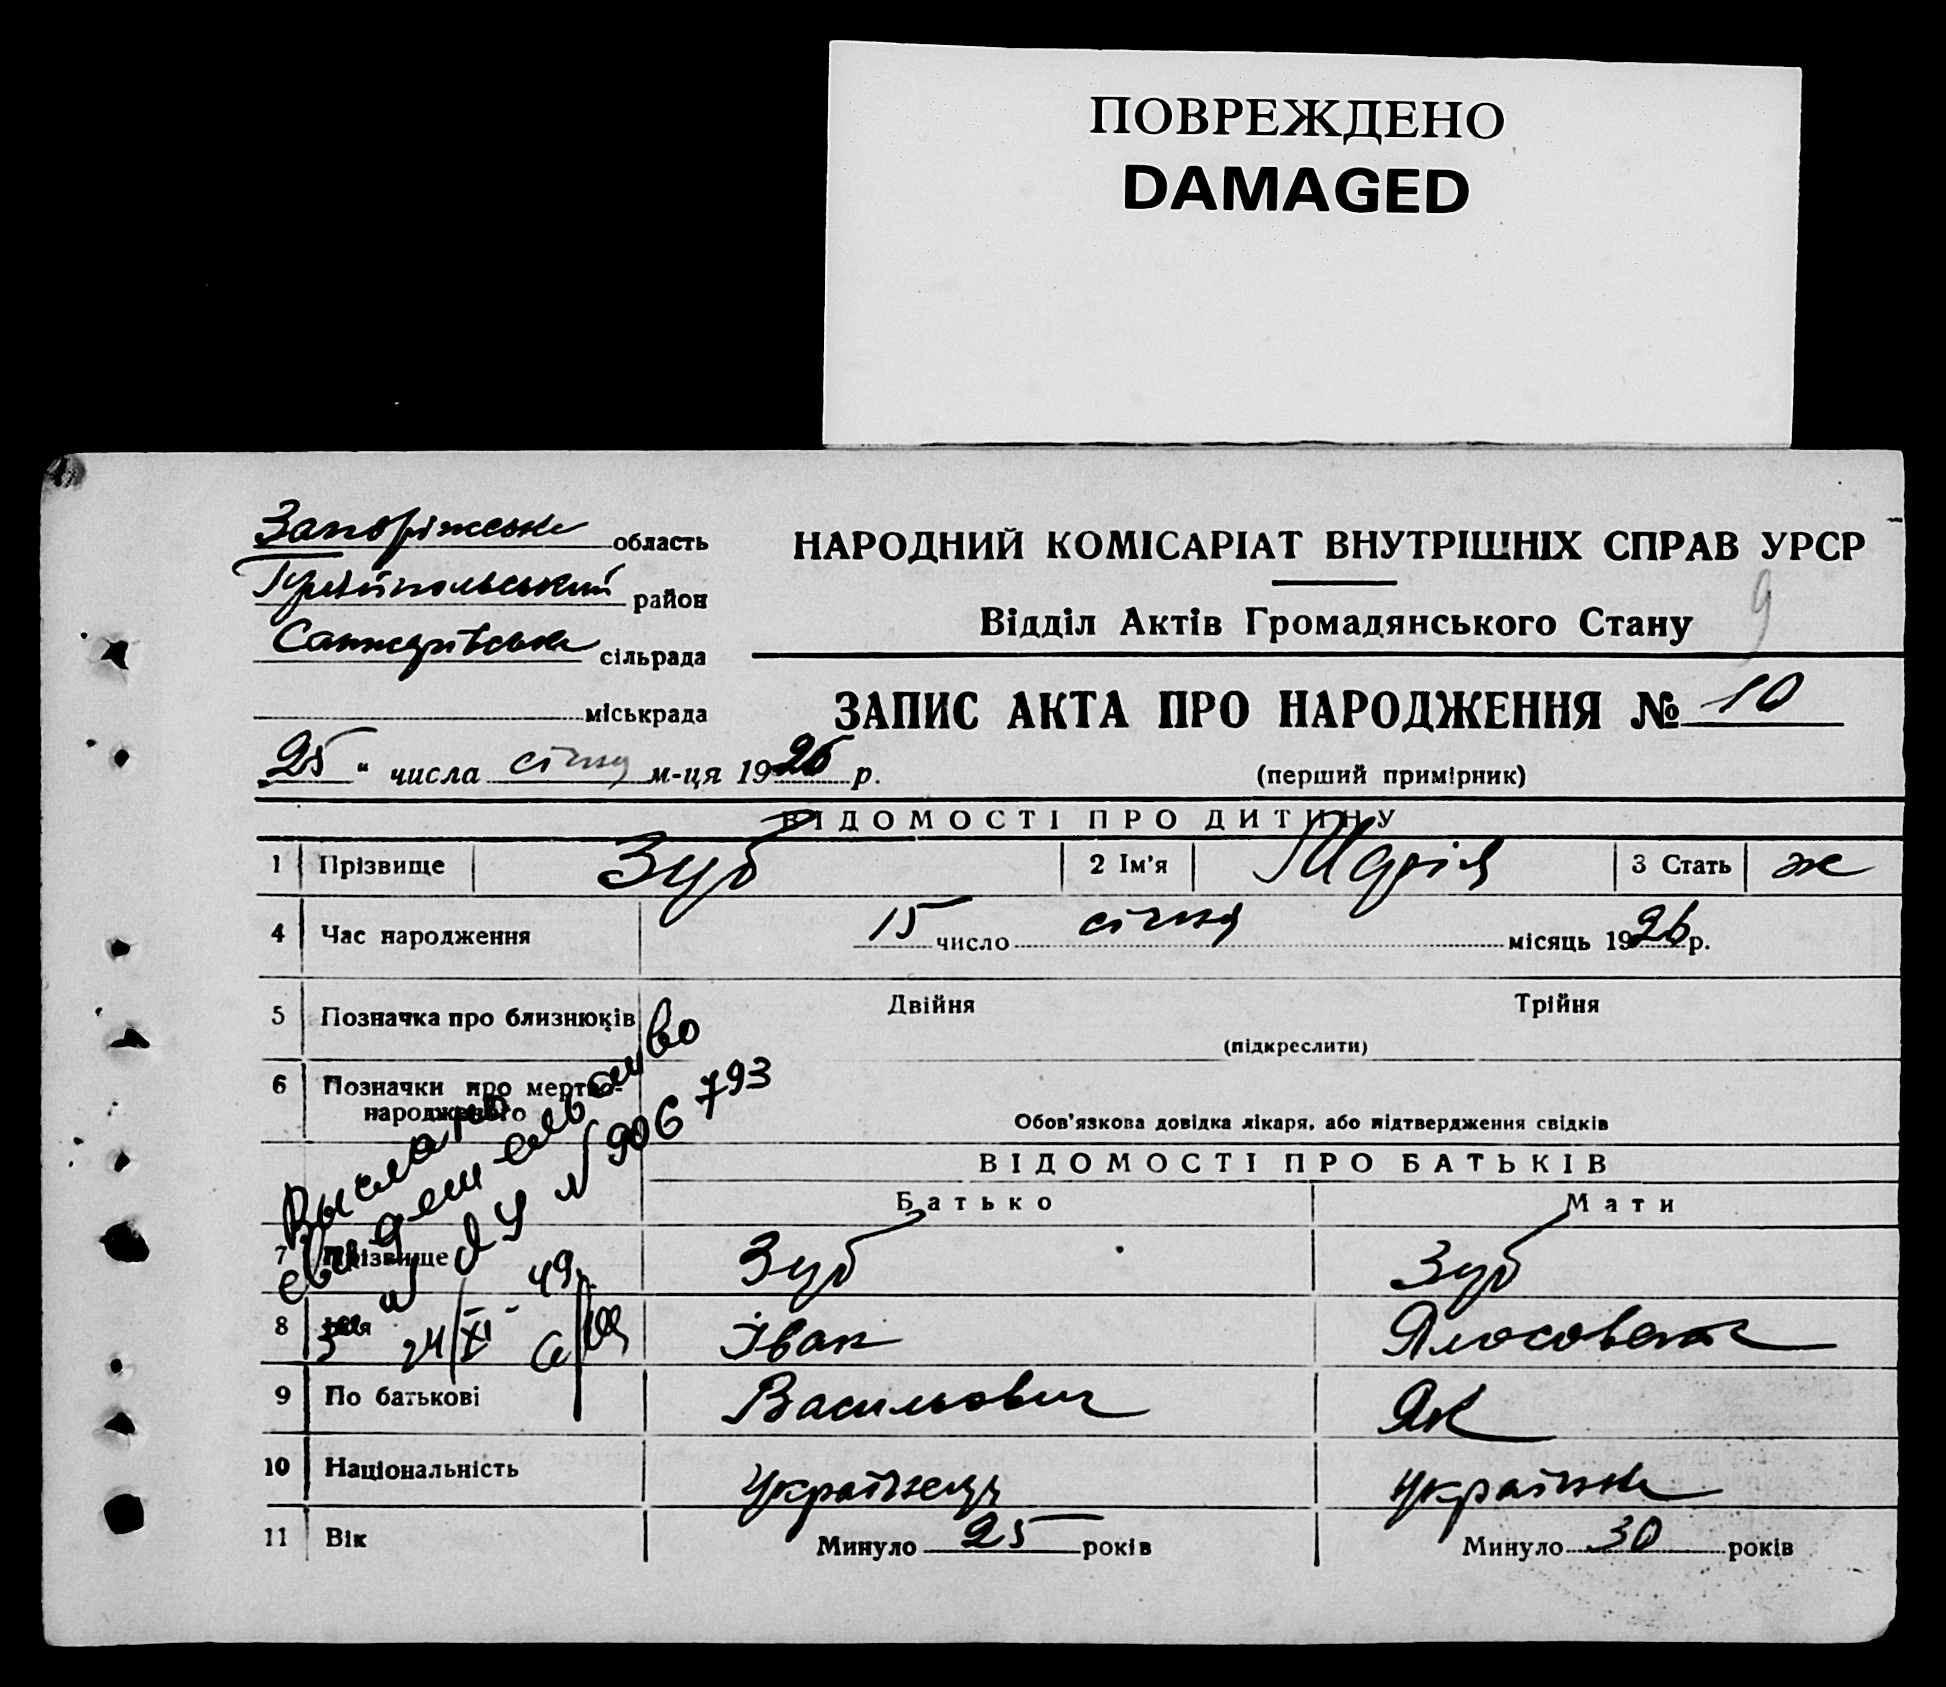 ПОВРЕЖДЕНО
DAMAGED
Запоріжська область
район
сільрада
міськрада
25 " числа січня м-ця 1926 р.
НАРОДНИЙ КОМІСАРІАТ ВНУТРІШНІХ СПРАВ УРСР
9
Відділ Актів Громадянського Стану
ЗАПИС АКТА ПРО НАРОДЖЕННЯ № 10
(перший примірник)
ВІДОМОСТІ ПРО ДИТИНУ
1 Прізвище Зуб 2 Ім'я Марія 3 Стать ж
4 Час народження 15 число січня місяць 1926 р.
5 Позначка про близнюків Двійня Трійня
(підкреслити)
6 Позначки про мертво-
народженого
Обов'язкова довідка лікаря, або підтвердження свідків
Выслано
свидетельство
ЛУ N 906793
за 24/XI - 49
ВІДОМОСТІ ПРО БАТЬКІВ
Батько Мати
7 Прізвище Зуб Зуб
8 Ім'я Іван
9 По батькові Васильович Як
10 Національність Українець Українка
11 Вік Минуло 25 років Минуло 30 років